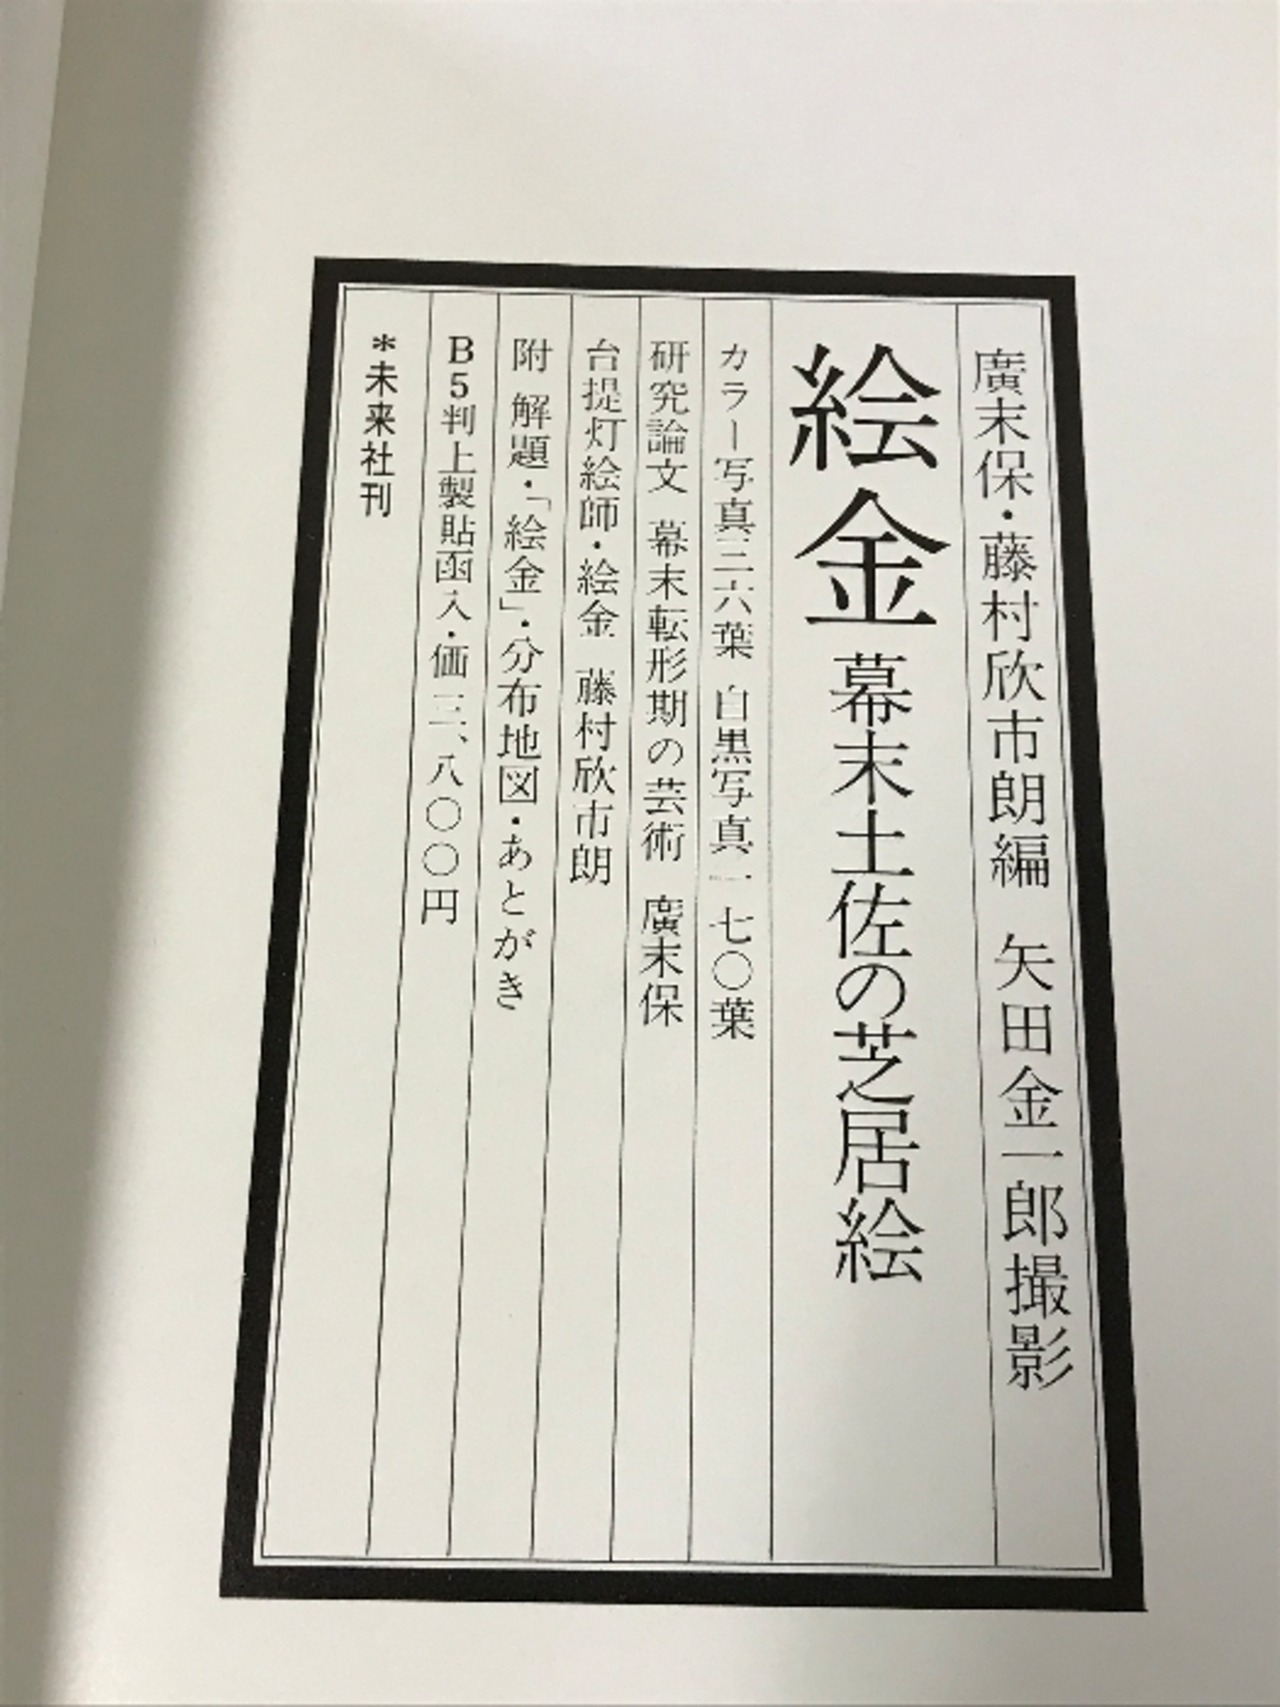 廣末保・藤村欣市朗編　矢田金一郎撮影
絵金　幕末土佐の芝居絵
カラー写真三六葉　白黒写真一七〇葉
研究論文　幕末転形期の芸術　廣末保
台提灯絵師・絵金　藤村欣市朗
附　解題・「絵金」・分布地図・あとがき
B5判上製貼函入・価三、八〇〇円
＊未来社刊